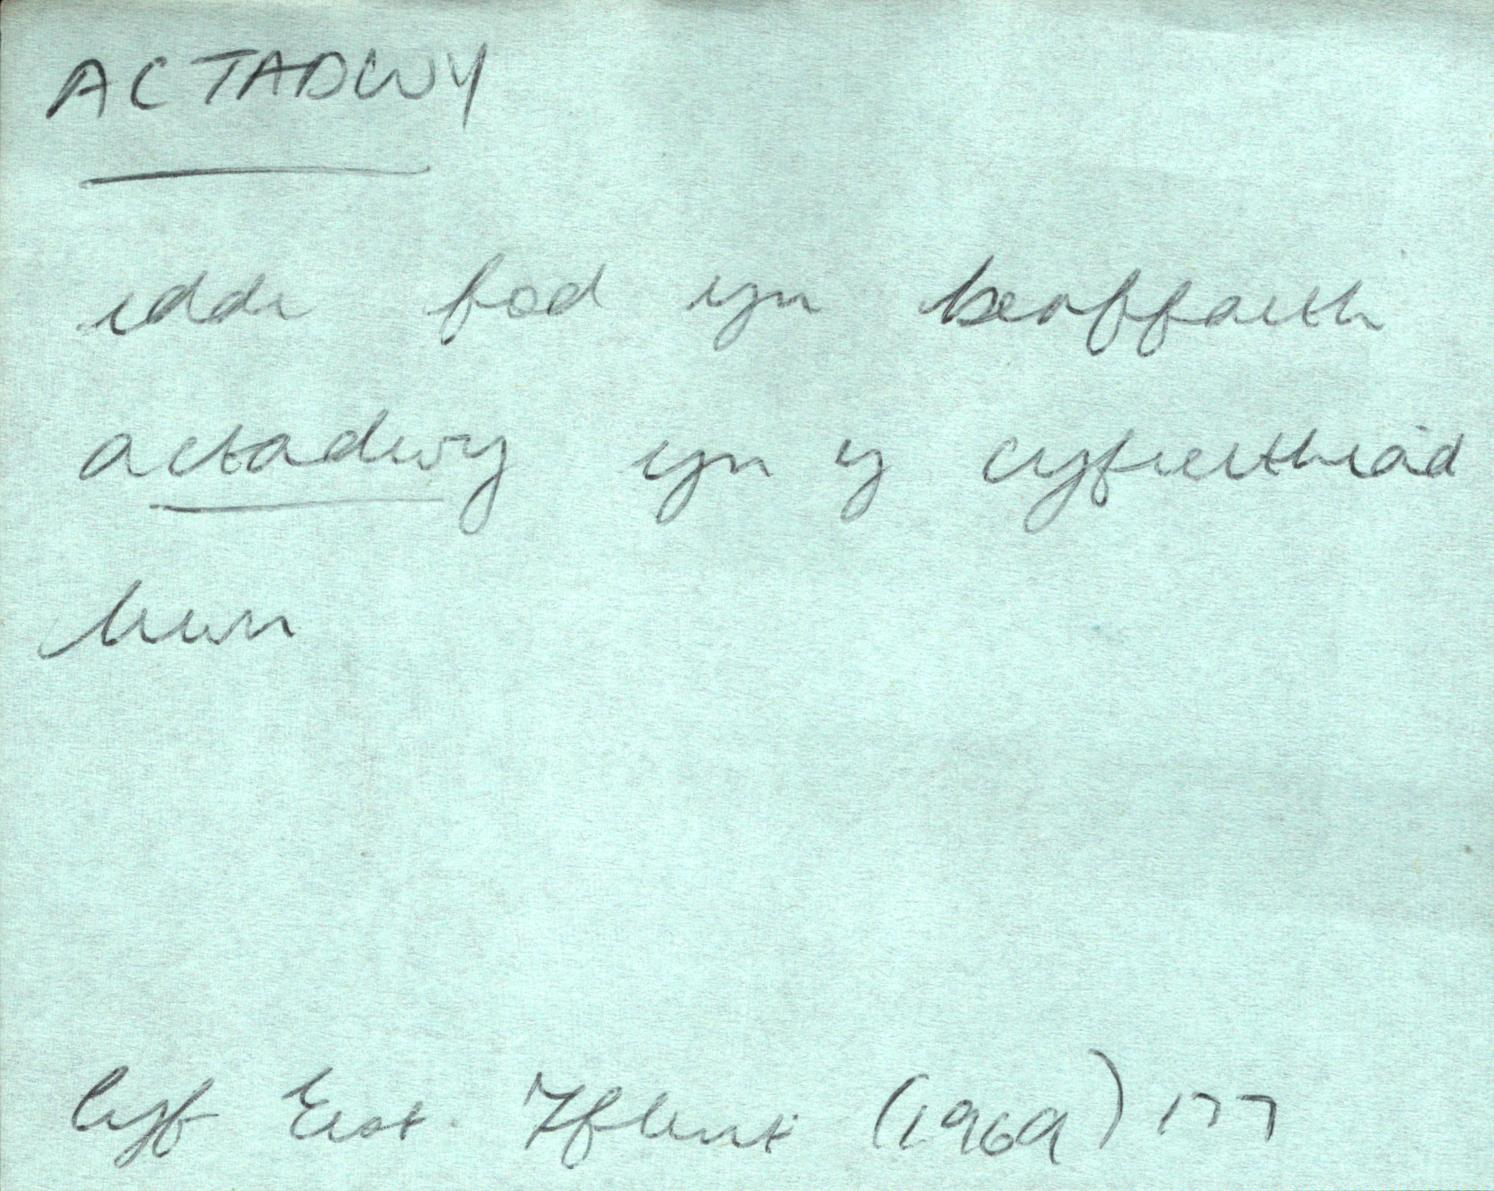 ACTADWY
iddi fod yn berffaith
actadwy yn y cyfieithiad
hwn
Cyf Eist. Y Fflint (1969) 177